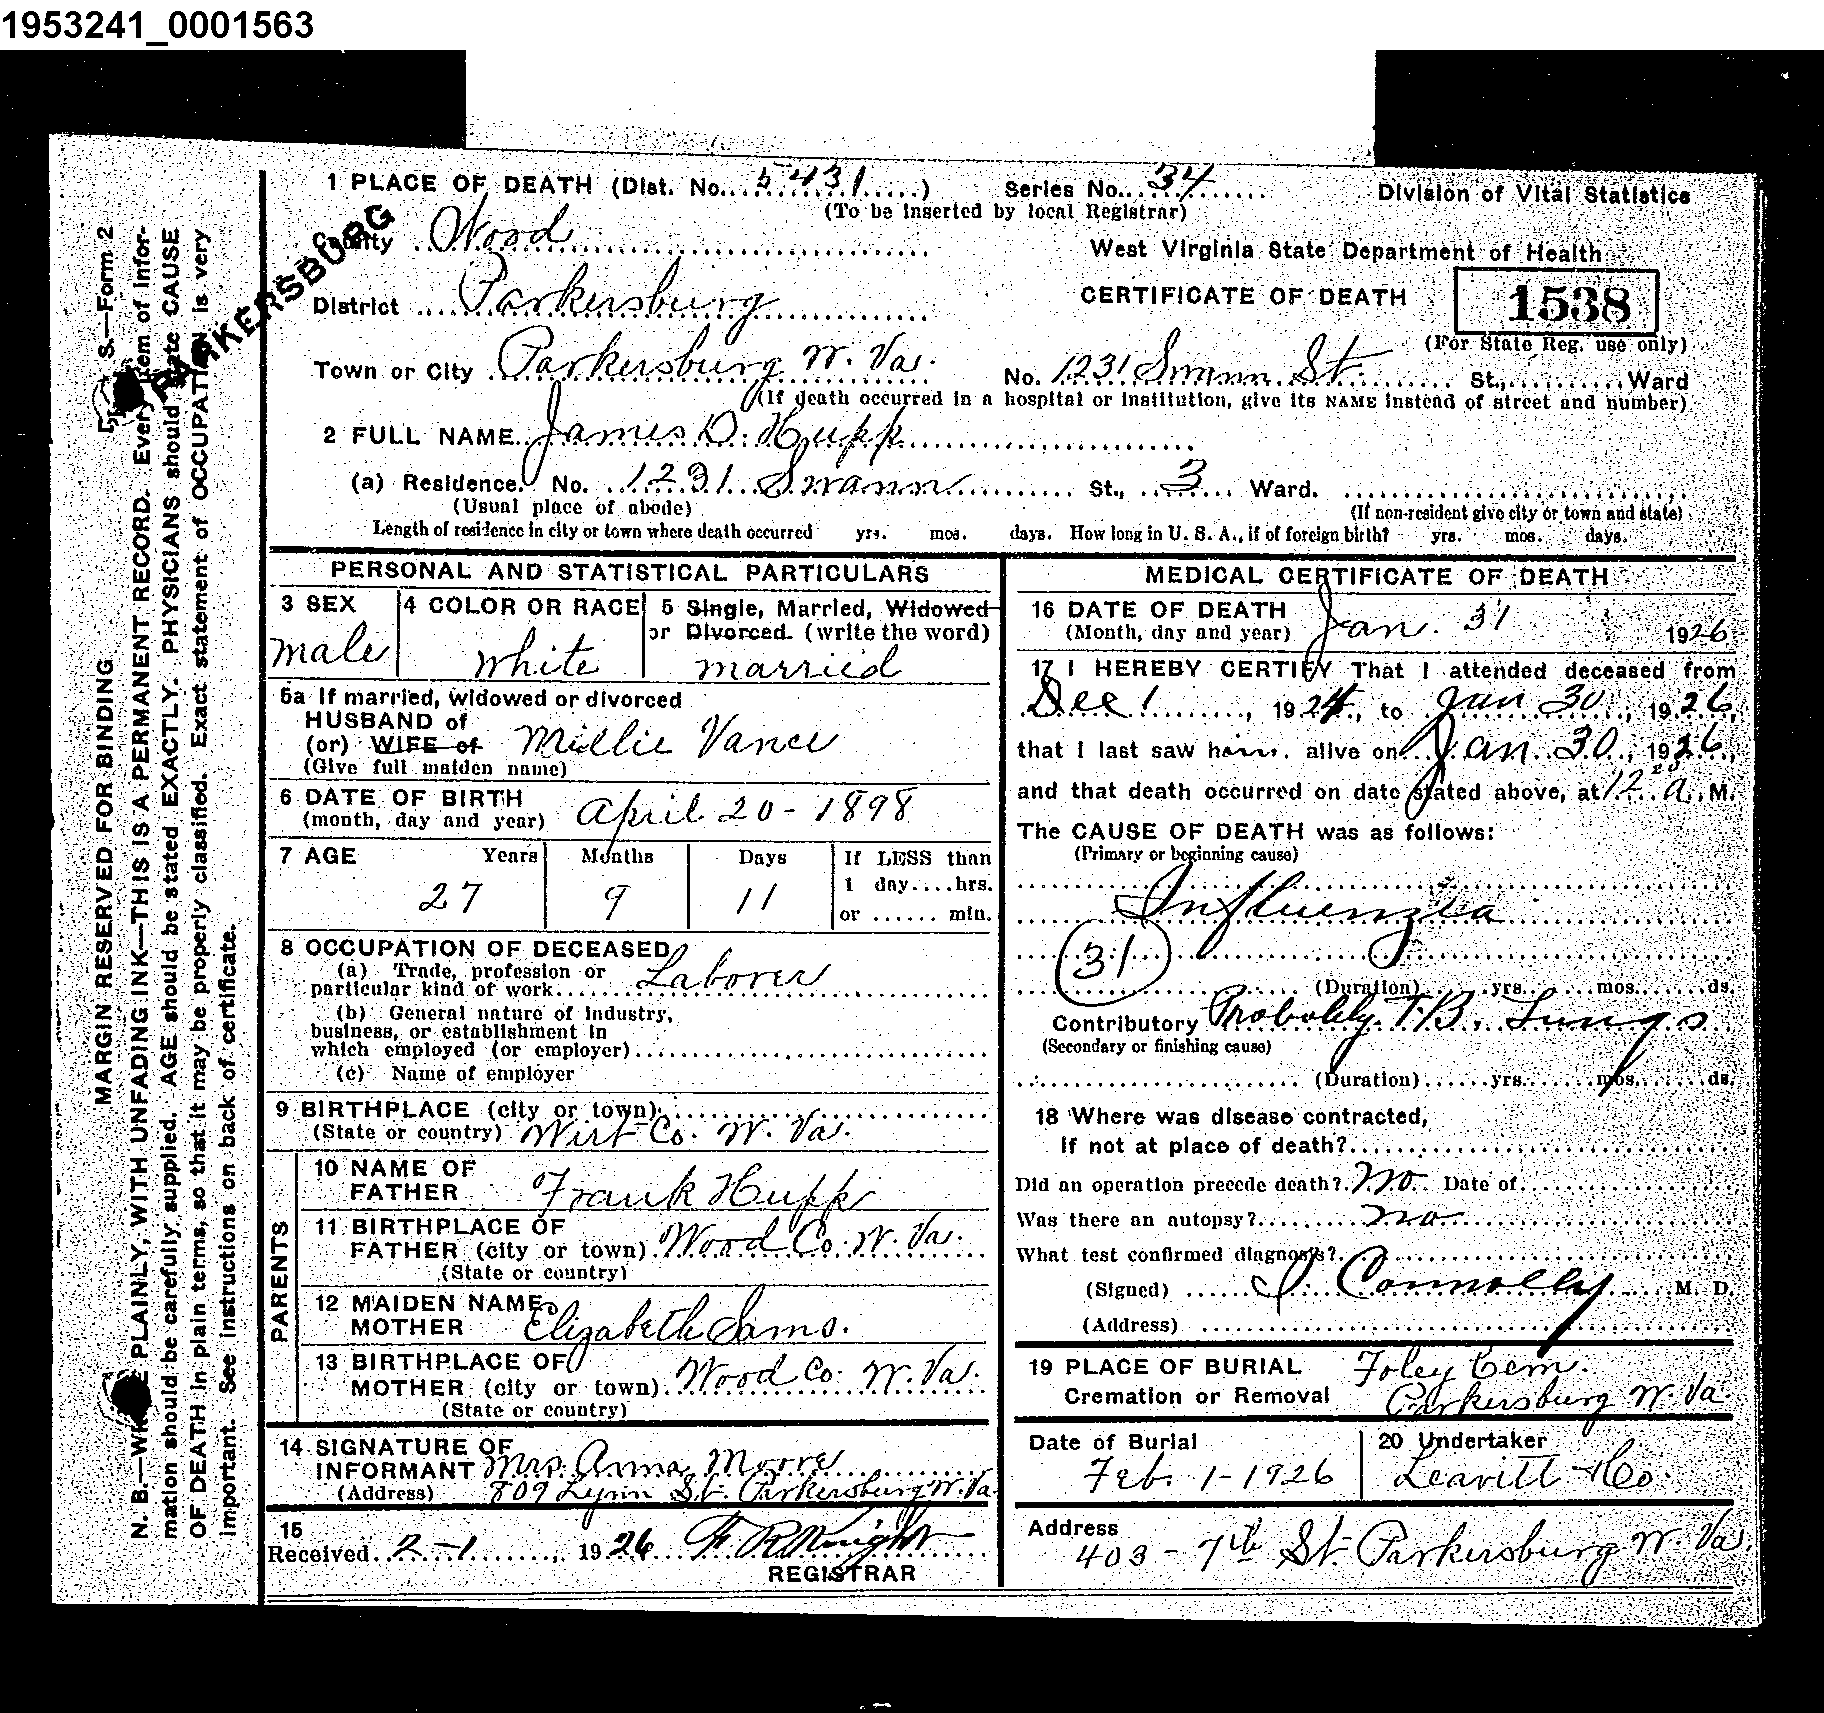 1953241_0001563
1 PLACE OF DEATH (Dist. No. 5431) Series No. 34 Division of Vital Statistics
(To be inserted by local Registrar)
County Wood West Virginia State Department of Health
PARKERSBURG
District Parkersburg CERTIFICATE OF DEATH 1538
(For State Reg. use only)
Town or City Parkersburg W. Va. No. 1231 Swann St. St., Ward
(If death occurred in a hospital or institution, give its NAME instead of street and number)
2 FULL NAME James D. Hupp
(a) Residence. No. 1231 Swann St., 3 Ward.
(Usual place of abode) (If non-resident give city or town and state)
Length of residence in city or town where death occurred yrs. mos. days. How long in U. S. A., if of foreign birth? yrs. mos. days.
PERSONAL AND STATISTICAL PARTICULARS
3 SEX 4 COLOR OR RACE 5 Single, Married, Widowed
or Divorced. (write the word)
male white married
5a If married, widowed or divorced
HUSBAND of
(or) WIFE of Millie Vance
(Give full maiden name)
6 DATE OF BIRTH
(month, day and year) April 20 - 1898
7 AGE Years Months Days If LESS than
1 day....hrs.
27 9 11
or ...... min.
8 OCCUPATION OF DECEASED
(a) Trade, profession or
particular kind of work Laborer
(b) General nature of Industry,
business, or establishment in
which employed (or employer)
(c) Name of employer
9 BIRTHPLACE (city or town)
(State or country) Wirt Co. W. Va.
PARENTS
10 NAME OF
FATHER Frank Hupp
11 BIRTHPLACE OF
FATHER (city or town) Wood Co. W. Va.
(State or country)
12 MAIDEN NAME
MOTHER Elizabeth Sams.
13 BIRTHPLACE OF
MOTHER (city or town) Wood Co. W. Va.
(State or country)
14 SIGNATURE OF
INFORMANT Mrs. Anna Moore
(Address) 809 Lynn St. Parkersburg W. Va.
15
Received 2-1 1926 R Knight
REGISTRAR
MEDICAL CERTIFICATE OF DEATH
16 DATE OF DEATH
(Month, day and year) Jan. 31 1926
17 I HEREBY CERTIFY That I attended deceased from
Dec 1, 1924, to Jan 30, 1926,
that I last saw him alive on Jan. 30, 1926,
and that death occurred on date stated above, at 12 20 a. M.
The CAUSE OF DEATH was as follows:
(Primary or beginning cause)
Influenzia
31
(Duration) yrs. mos. ds.
Contributory Probably T.B. Lungs
(Secondary or finishing cause)
(Duration) yrs. mos. ds.
18 Where was disease contracted,
If not at place of death?
Did an operation precede death? no Date of
Was there an autopsy? no
What test confirmed diagnosis?
(Signed) Connolly M. D.
(Address)
19 PLACE OF BURIAL Foley Cem.
Cremation or Removal Parkersburg W. Va.
Date of Burial 20 Undertaker
Feb. 1-1926 Leavitt Co.
Address
403 - 7th St. Parkersburg W. Va.
S.—Form 2
MARGIN RESERVED FOR BINDING
N. B.—WRITE PLAINLY, WITH UNFADING INK—THIS IS A PERMANENT RECORD. Every item of infor-
mation should be carefully supplied. AGE should be stated EXACTLY. PHYSICIANS should state CAUSE
OF DEATH in plain terms, so that it may be properly classified. Exact statement of OCCUPATION is very
important. See instructions on back of certificate.